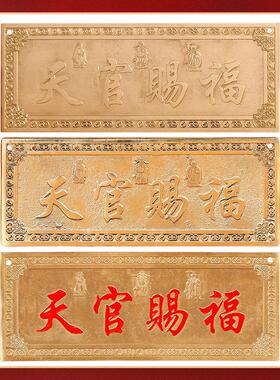 天官賜福
天官賜福
天官賜福